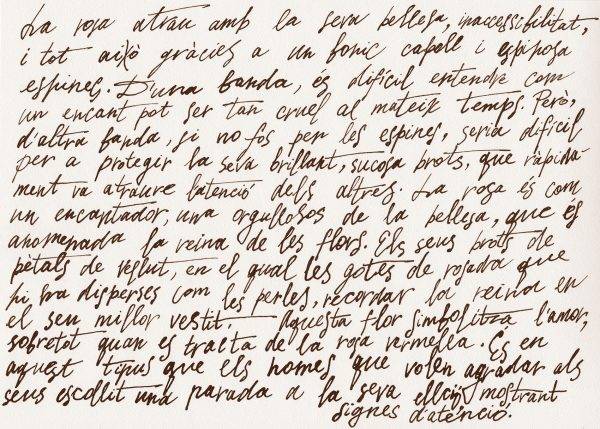 La rosa atrau amb la seva bellesa, inaccessibilitat,
i tot això gràcies a un bonic capell i espinosa
espines. D'una banda, és difícil entendre com
un encant pot ser tan cruel al mateix temps. Però,
d'altra banda, si no fos per les espines, seria difícil
per a protegir la seva brillant, sucosa brots, que ràpida-
ment va atraure l'atenció dels altres. La rosa és com
un encantador, una orgulloses de la bellesa, que és
anomenada la reina de les flors. Els seus brots de
pètals de vellut, en el qual les gotes de rosada que
hi ha disperses com les perles, recordar la reina en
el seu millor vestit. Aquesta flor simbolitza l'amor,
sobretot quan es tracta de la rosa vermella. És en
aquest tipus que els homes que volen agradar als
seus escollit una parada a la seva elecció mostrant
signes d'atenció.